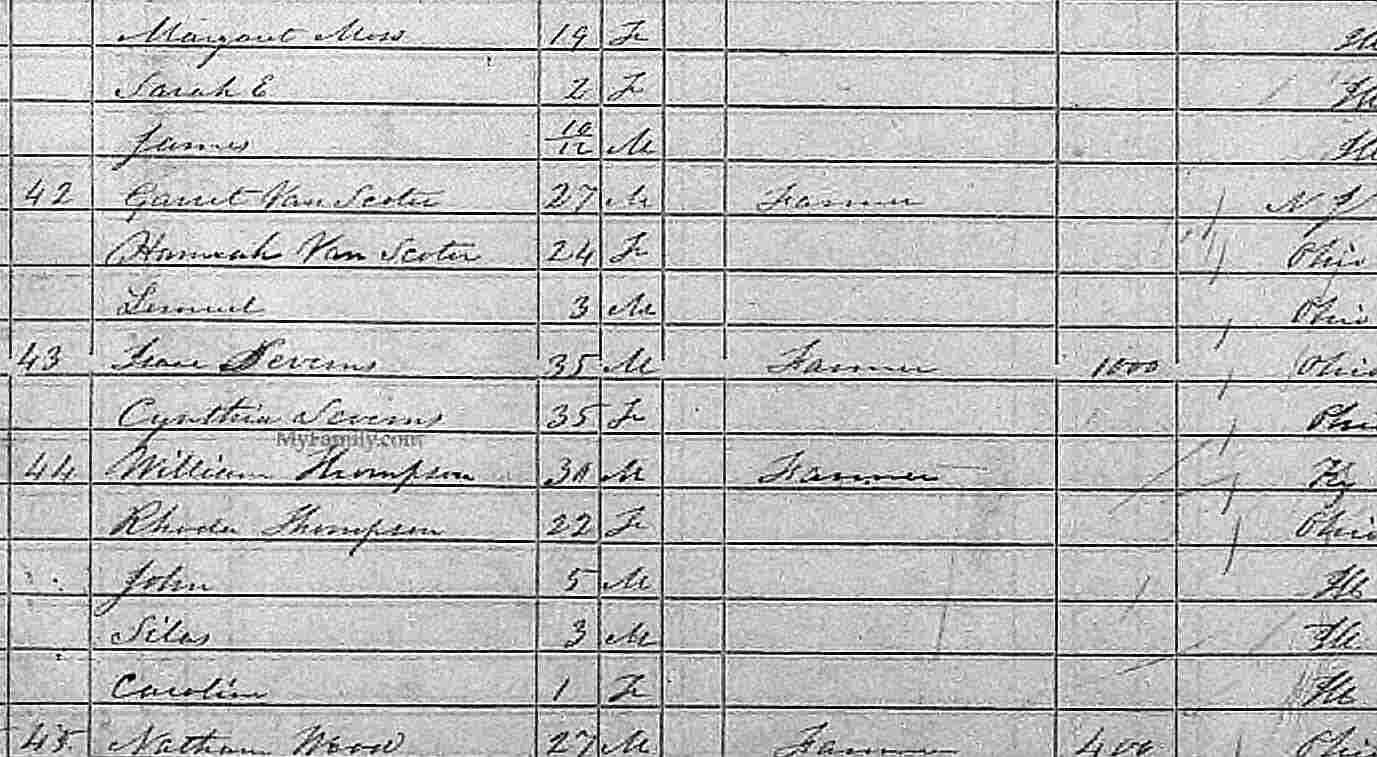 Margaret Moss 19 F Ill
Sarah E 2 F Ill
James 10/12 M Ill
42 Garret Van Scoter 27 M Farmer N J
Hannah Van Scoter 24 F Ohio
Lemuel 3 M Ohio
43 Isaac Severns 35 M Farmer 1000 Ohio
Cynthia Severns 35 F Ohio
MyFamily.com
44 William Thompson 30 M Farmer Ky
Rhoda Thompson 22 F Ohio
John 5 M Ill
Silas 3 M Ill
Carolin 1 F Ill
45 Nathan Wood 27 M Farmer 400 Ohio